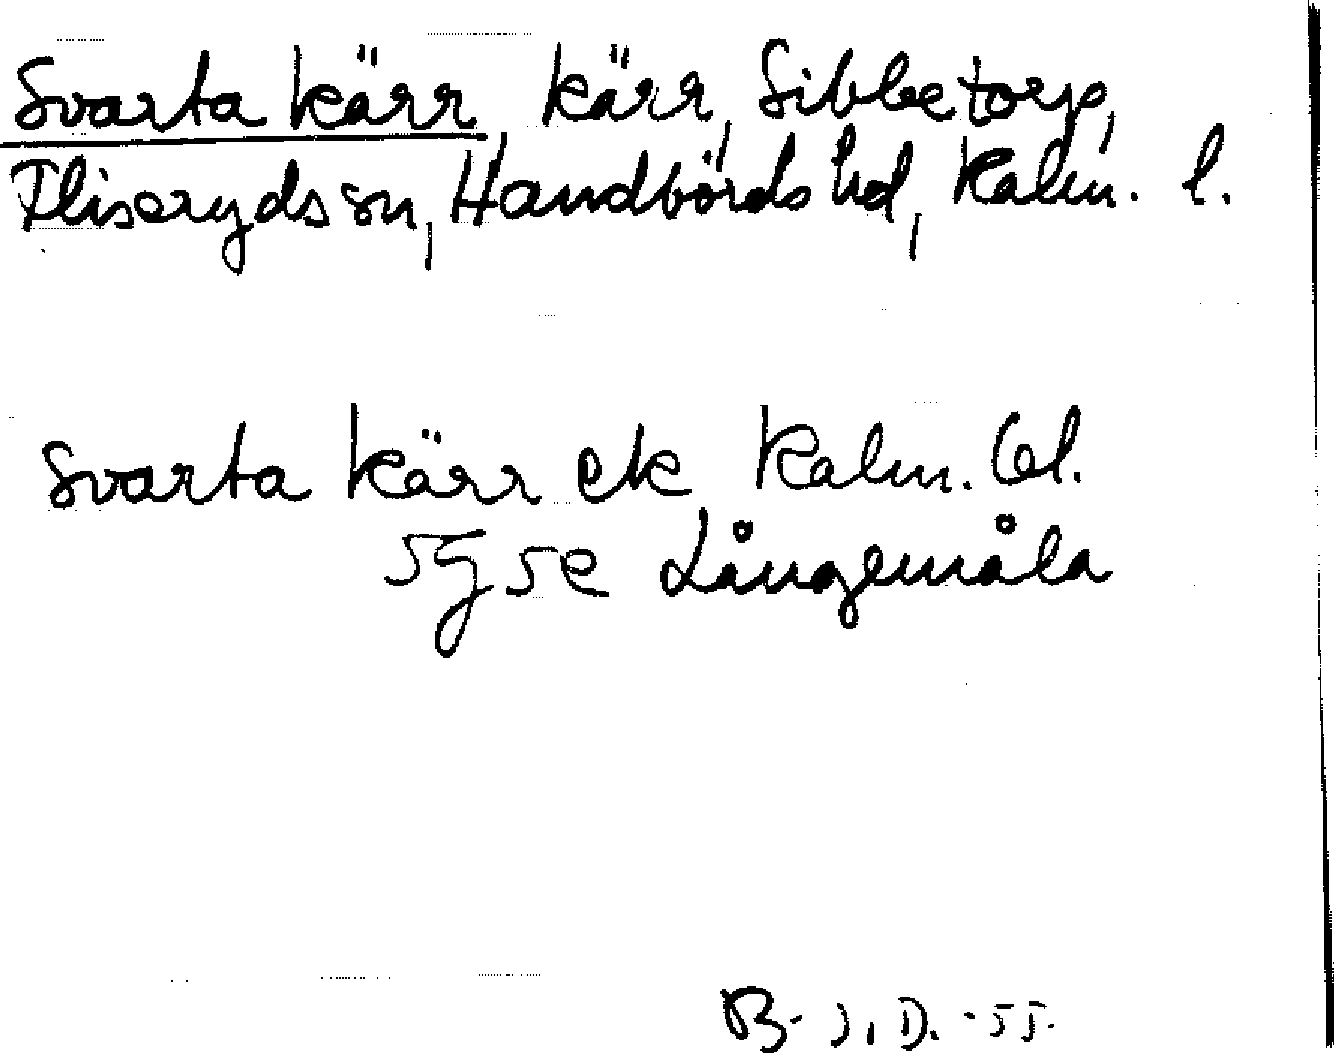 Svarta kärr, kärr, Sibbetorp,
Fliseryds sn, Handbörds hd, Kalm. l.
Svarta kärr ek Kalm. bl.
5g5e Långemåla
B- J. D. -55.